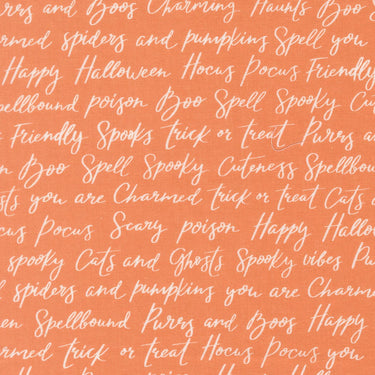 Purrs and Boos Charming Haunts Boo
armed spiders and pumpkins Spell you
Happy Halloween Hocus Pocus Friendly
pellbound poison Boo Spell Spooky Cu
Friendly Spooks trick or treat Purrs an
n Boo Spell Spooky Cuteness Spellbou
sts you are Charmed trick or treat Cats a
cus Pocus Scary poison Happy Hallo
spooky Cats and Ghosts Spooky vibes Pu
d spiders and pumpkins you are Charm
en Spellbound Purrs and Boos Happy
armed trick or treat Hocus Pocus You
Happy Hallow